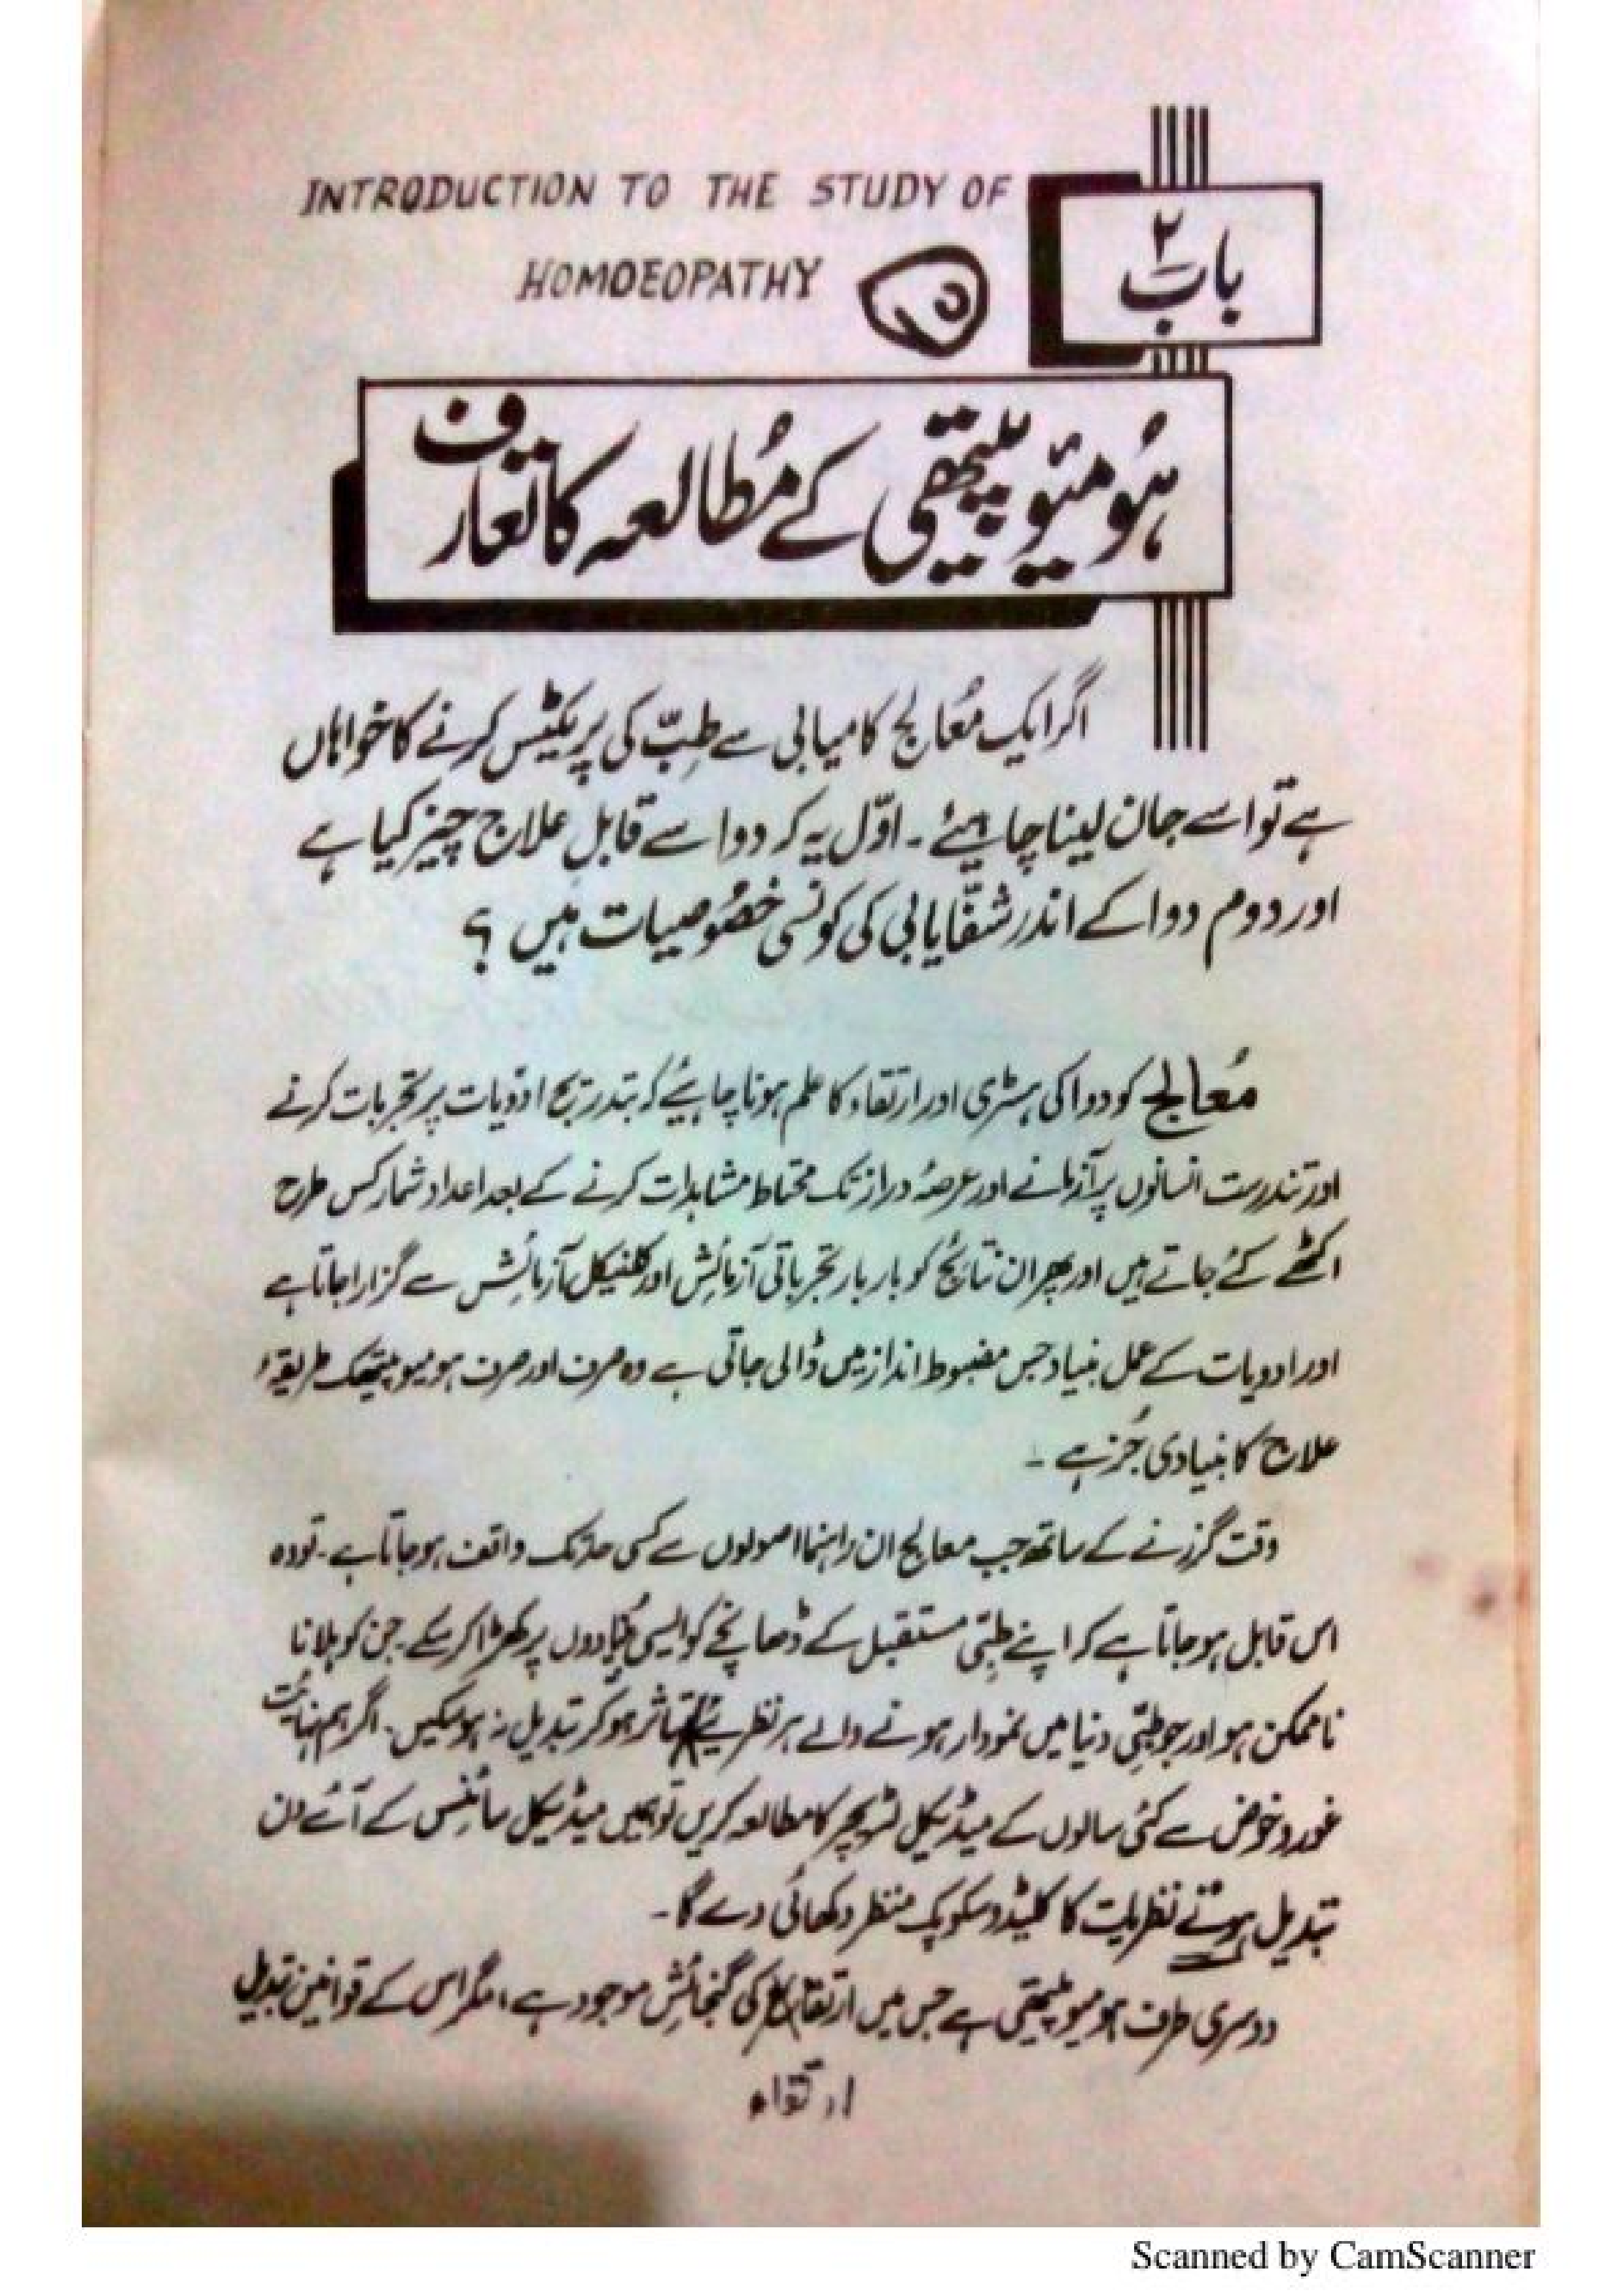 INTRODUCTION TO THE STUDY OF
HOMOEOPATHY
باب ۲
ہُومیئوپیتھی کے مُطالعہ کا تعارف
اگر ایک مُعالج کامیابی سے طِبّ کی پریکٹس کرنے کا خواہاں
ہے تو اسے جان لینا چاہیئے ۔ اوّل یہ کہ دوا سے قابلِ علاج چیز کیا ہے
اور دوم دوا کے اندر شفایابی کی کونسی خصُوصیات ہیں ؟
مُعالج کو دوا کی ہسٹری اور ارتقاء کا علم ہونا چاہیئے کہ بتدریج ادویات پر تجربات کرنے
اور تندرست انسانوں پر آزمانے اور عرصۂ دراز تک محتاط مشاہدات کرنے کے بعد اعداد شمار کس طرح
اکٹھے کئے جاتے ہیں اور پھر ان نتائج کو بار بار تجرباتی آزمائش اور کلنیکل آزمائش سے گزارا جاتا ہے
اور ادویات کے عمل بنیاد جس مضبوط انداز میں ڈالی جاتی ہے وہ صرف اور صرف ہومیوپیتھک طریقۂ
علاج کا بنیادی جُز ہے ۔
وقت گزرنے کے ساتھ جب معالج ان راہنما اصولوں سے کسی حد تک واقف ہو جاتا ہے ۔ تو وہ
اس قابل ہو جاتا ہے کہ اپنے طِبّی مستقبل کے ڈھانچے کو ایسی بُنیادوں پر کھڑا کر سکے ۔ جن کو ہلانا
ناممکن ہو اور جو طبّی دنیا میں نمودار ہونے والے ہر نظریئے متاثر ہو کر تبدیل نہ ہو سکیں ۔ اگر ہم نہائت
غور و خوض سے کئی سالوں کے میڈیکل لٹریچر کا مطالعہ کریں تو ہمیں میڈیکل سائنس کے آئے دن
تبدیل ہوتے نظریات کا کلیڈوسکوپک منظر دکھائی دے گا ۔
دوسری طرف ہومیوپیتھی ہے جس میں ارتقاء کی گنجائش موجود ہے ، مگر اس کے قوانین تبدیل
ارتقاء
Scanned by CamScanner